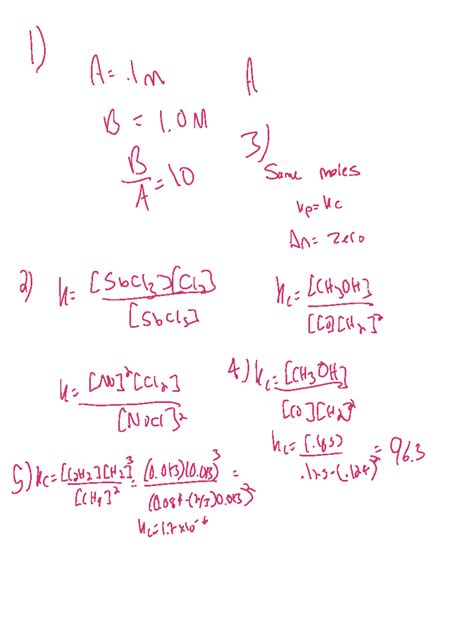 1)
A = .1m
B = 1.0M
B/A = 10
A
3)
Same moles
Kp = Kc
Δn = zero
2) K = [SbCl3][Cl2] / [SbCl5]
Kc = [CH3OH] / [CO][H2]²
K = [NO]²[Cl2] / [NOCl]²
4) Kc = [CH3OH] / [CO][H2]²
Kc = (.185) / = 96.3
5) Kc = [C2H2][H2]³ / [CH4]² = (0.013)(0.013)³ / =
Kc = 1.7x10⁻⁶